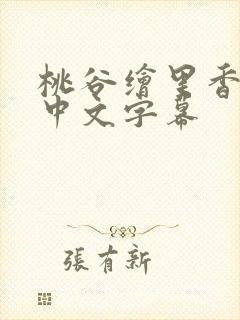 桃谷繪里香
中文字幕
張有新